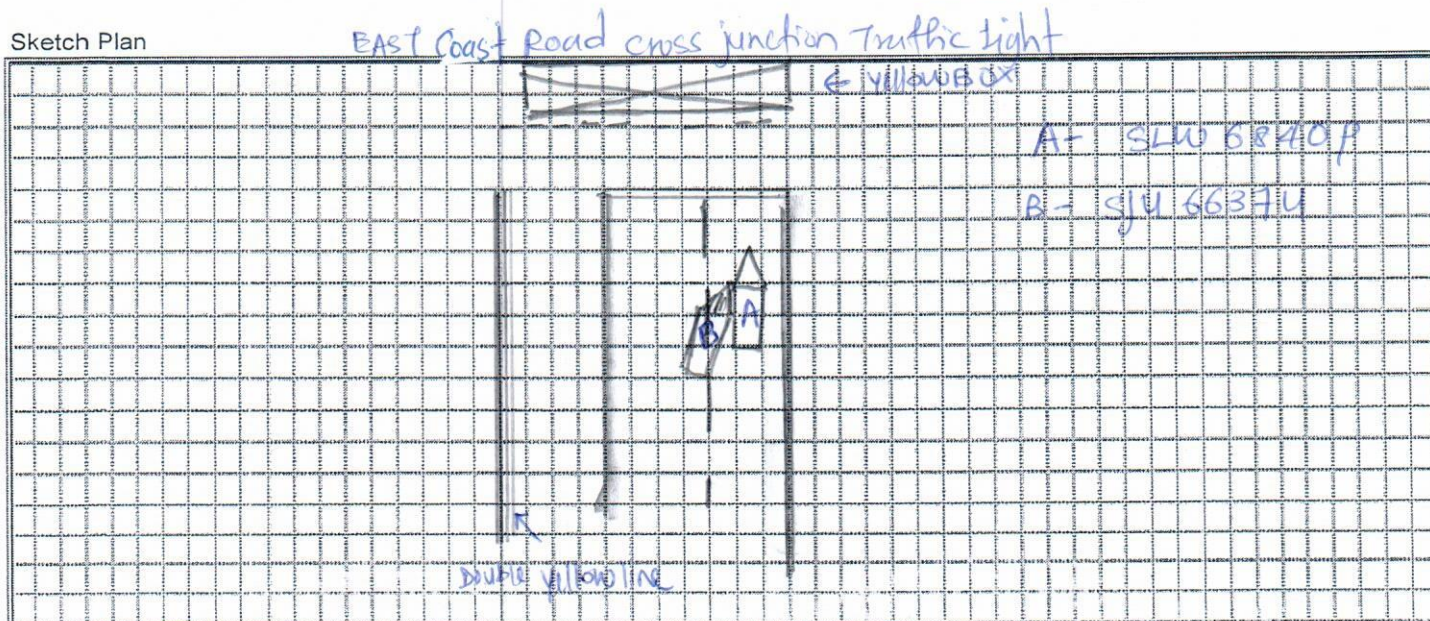 Sketch Plan
EAST Coast Road cross junction Traffic Light
← yellow BOX
A - SLW 6840P
B - SJU 6637U
A
B
Double yellow line